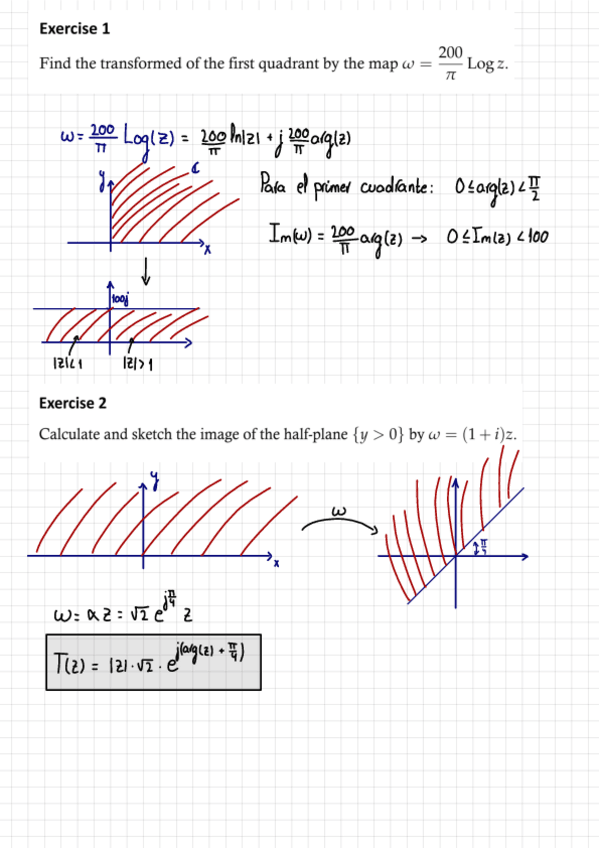 Exercise 1
Find the transformed of the first quadrant by the map ω = 200/π Log z.
ω = 200/π Log(z) = 200/π ln|z| + j 200/π arg(z)
y
C
x
Para el primer cuadrante: 0 ≤ arg(z) < π/2
Im(ω) = 200/π arg(z) → 0 ≤ Im(z) < 100
100j
|z|<1 |z|>1
Exercise 2
Calculate and sketch the image of the half-plane {y > 0} by ω = (1 + i)z.
y
x
ω
π/4
ω = α z = √2 e^{jπ/4} z
T(z) = |z| · √2 · e^{j(arg(z) + π/4)}